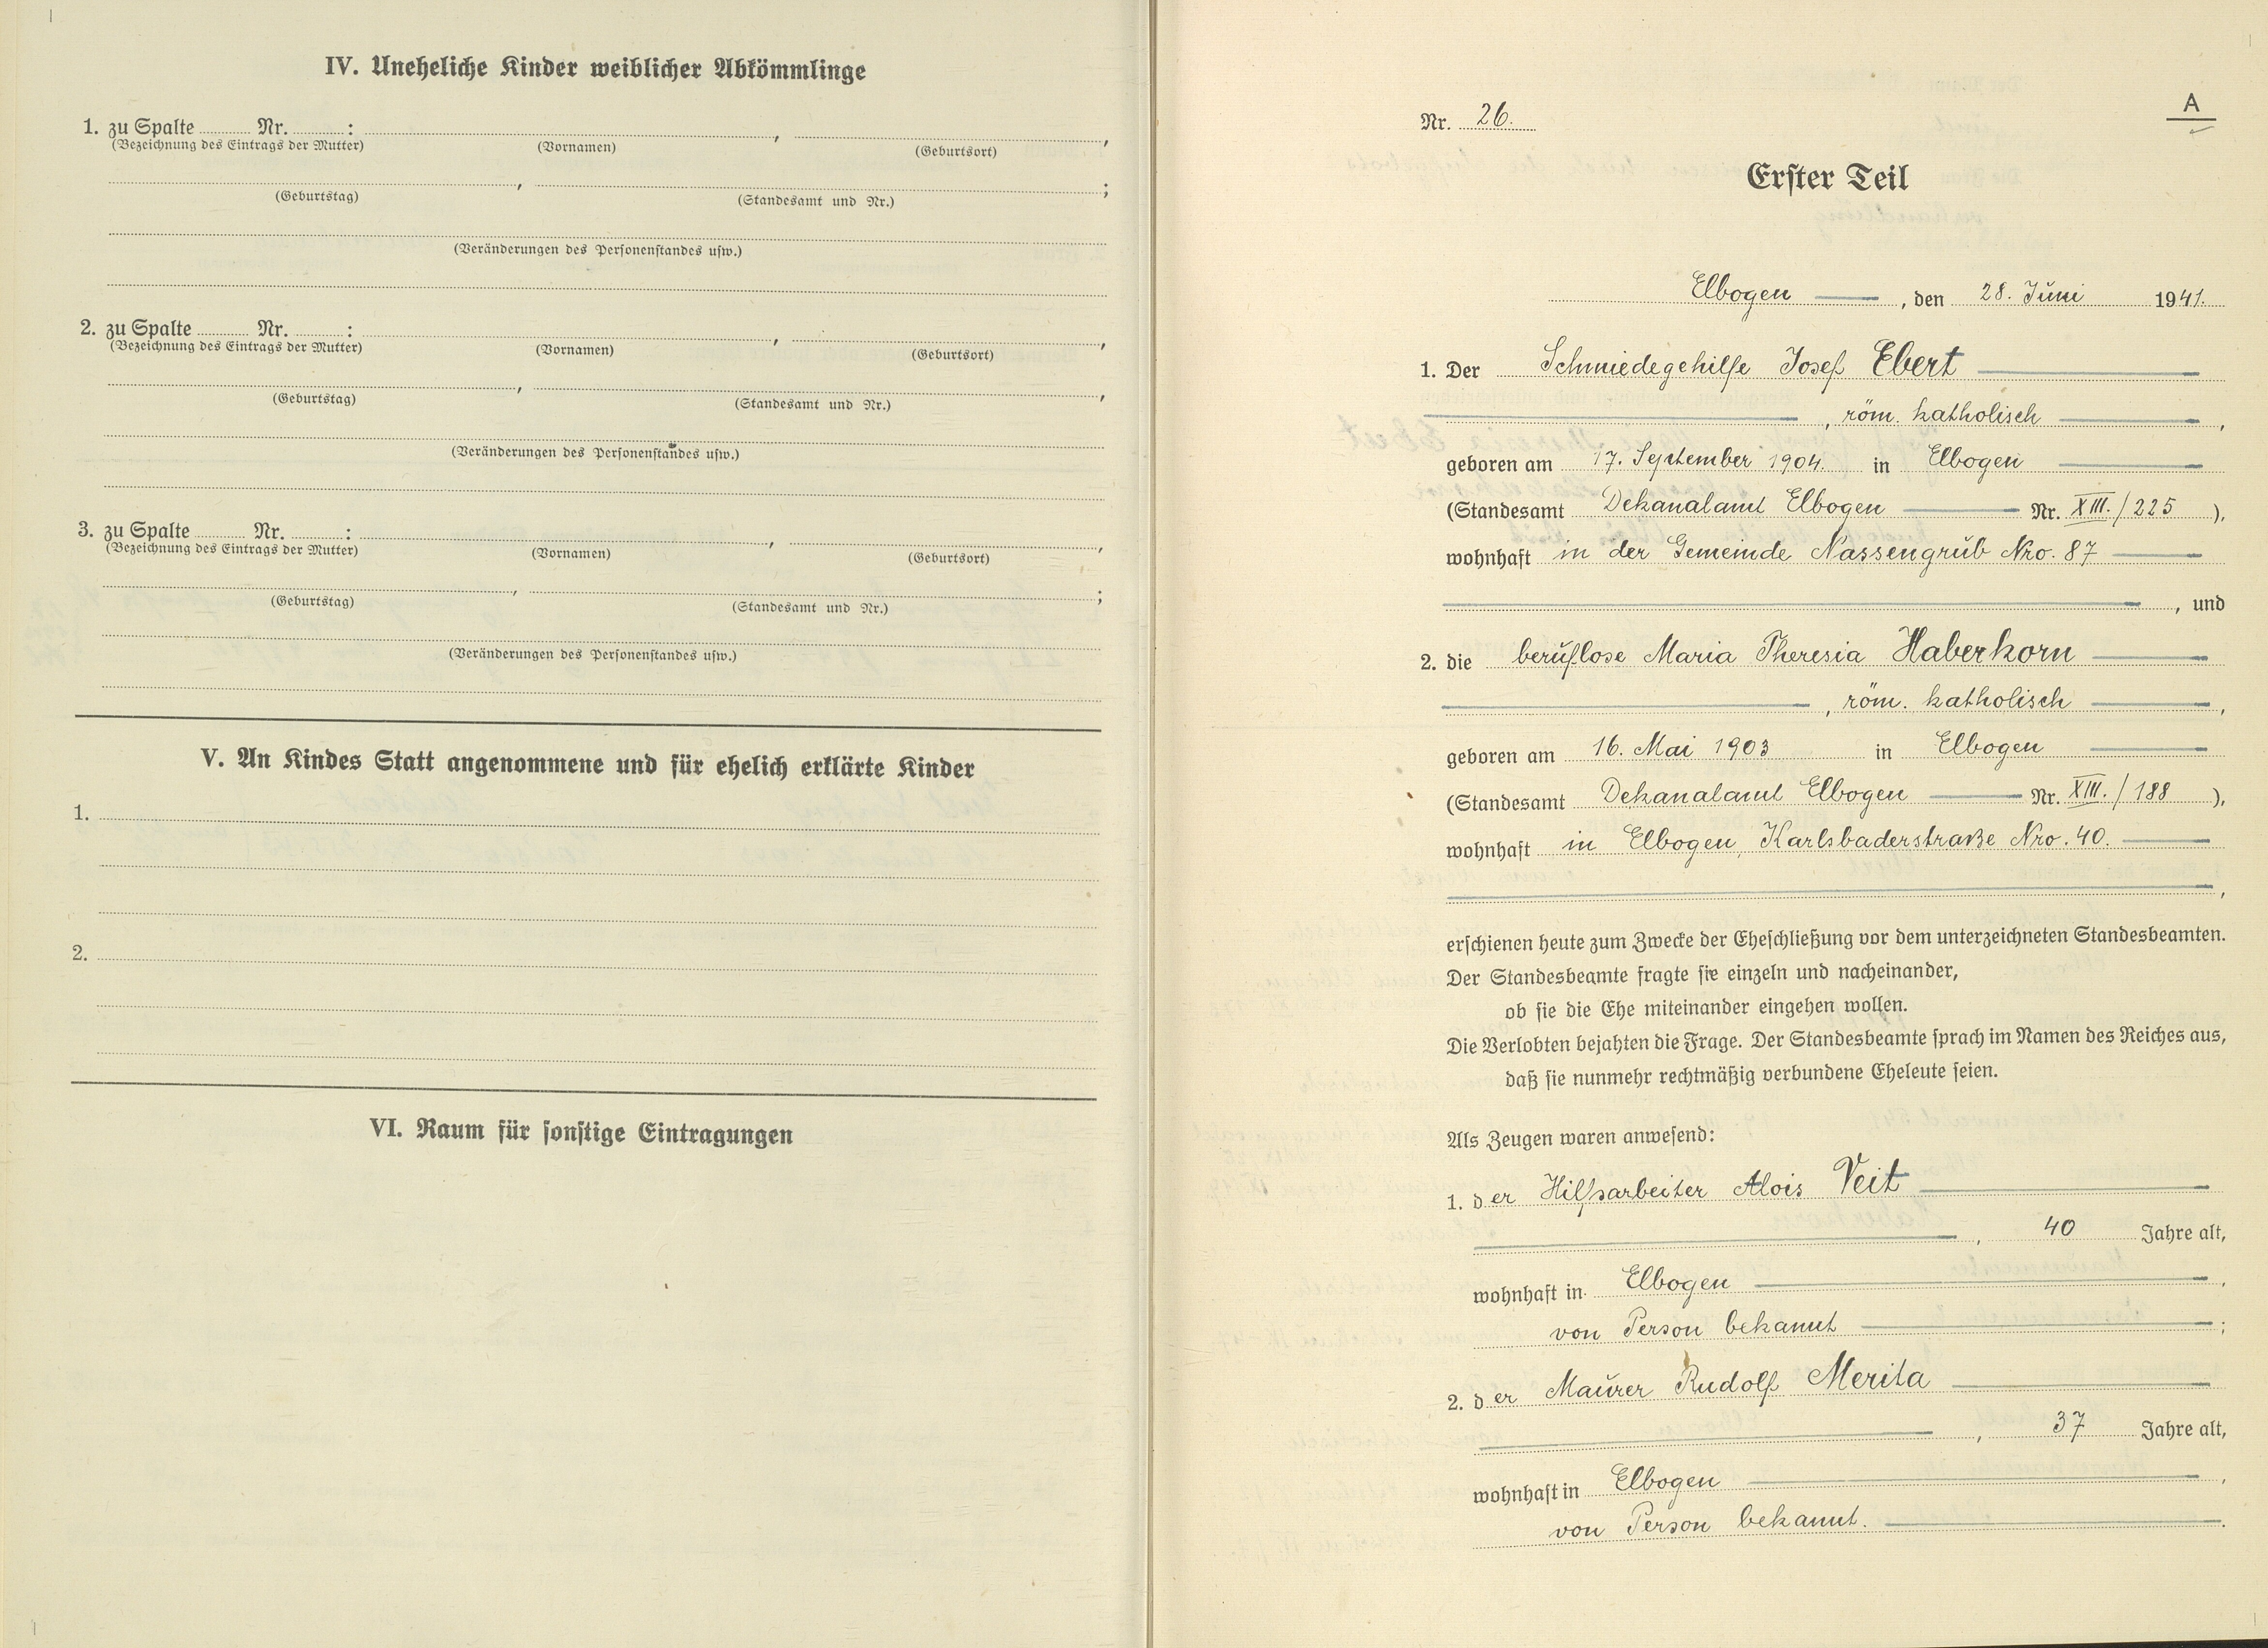 IV. Uneheliche Kinder weiblicher Abkömmlinge
1. zu Spalte ........ Nr. ........ : ........ , ........ ,
(Bezeichnung des Eintrags der Mutter) (Vornamen) (Geburtsort)
........ , ........ ;
(Geburtstag) (Standesamt und Nr.)
(Veränderungen des Personenstandes usw.)
2. zu Spalte ........ Nr. ........ : ........ , ........ ,
(Bezeichnung des Eintrags der Mutter) (Vornamen) (Geburtsort)
........ , ........ ,
(Geburtstag) (Standesamt und Nr.)
(Veränderungen des Personenstandes usw.)
3. zu Spalte ........ Nr. ........ : ........ , ........ ,
(Bezeichnung des Eintrags der Mutter) (Vornamen) (Geburtsort)
........ , ........ ;
(Geburtstag) (Standesamt und Nr.)
(Veränderungen des Personenstandes usw.)
V. An Kindes Statt angenommene und für ehelich erklärte Kinder
1.
2.
VI. Raum für sonstige Eintragungen
A
Nr. 26.
Erster Teil
Elbogen , den 28. Juni 1941.
1. Der Schmiedegehilfe Josef Ebert
, röm. katholisch ,
geboren am 17. September 1904. in Elbogen
(Standesamt Dekanalamt Elbogen Nr. XIII./225 ),
wohnhaft in der Gemeinde Nassengrub Nro. 87
, und
2. die beruflose Maria Theresia Haberkorn
, röm. katholisch ,
geboren am 16. Mai 1903 in Elbogen
(Standesamt Dekanalamt Elbogen Nr. XIII./188 ),
wohnhaft in Elbogen, Karlsbaderstraße Nro. 40.
,
erschienen heute zum Zwecke der Eheschließung vor dem unterzeichneten Standesbeamten.
Der Standesbeamte fragte sie einzeln und nacheinander,
ob sie die Ehe miteinander eingehen wollen.
Die Verlobten bejahten die Frage. Der Standesbeamte sprach im Namen des Reiches aus,
daß sie nunmehr rechtmäßig verbundene Eheleute seien.
Als Zeugen waren anwesend:
1. der Hilfsarbeiter Alois Veit
, 40 Jahre alt,
wohnhaft in Elbogen ,
von Person bekannt ;
2. der Maurer Rudolf Merita
, 37 Jahre alt,
wohnhaft in Elbogen ,
von Person bekannt.